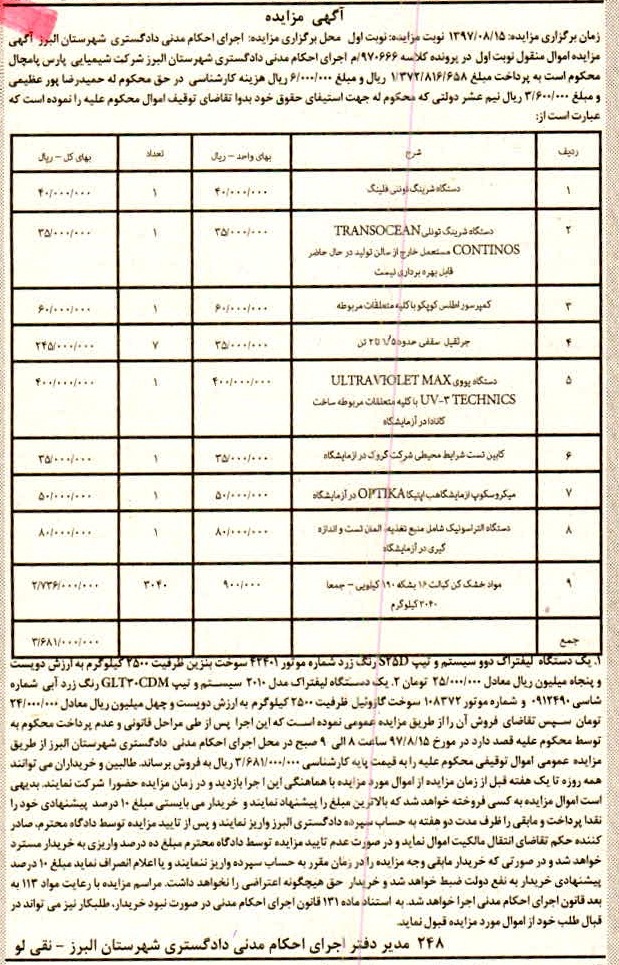 آگهی مزایده
زمان برگزاری مزایده: ۱۳۹۷/۰۸/۱۵ نوبت مزایده: نوبت اول محل برگزاری مزایده: اجرای احکام مدنی دادگستری شهرستان البرز آگهی
مزایده اموال منقول نوبت اول در پرونده کلاسه ۹۷۰۶۶۶/م اجرای احکام مدنی دادگستری شهرستان البرز شرکت شیمیایی پارس پامچال
محکوم است به پرداخت مبلغ ۱/۳۷۲/۸۱۶/۶۵۸ ریال و مبلغ ۶/۰۰۰/۰۰۰ ریال هزینه کارشناسی در حق محکوم له حمیدرضا پور عظیمی
و مبلغ ۳/۶۰۰/۰۰۰ ریال نیم عشر دولتی که محکوم له جهت استیفای حقوق خود بدوا تقاضای توقیف اموال محکوم علیه را نموده است که
عبارت است از:
ردیف شرح بهای واحد – ریال تعداد بهای کل – ریال
۱ دستگاه شرینگ تونلی فلینگ ۴۰/۰۰۰/۰۰۰ ۱ ۴۰/۰۰۰/۰۰۰
۲ دستگاه شرینگ تونلی TRANSOCEAN ۳۵/۰۰۰/۰۰۰ ۱ ۳۵/۰۰۰/۰۰۰
CONTINOS مستعمل خارج از سالن تولید در حال حاضر
قابل بهره برداری نیست
۳ کمپرسور اطلس کوپکو با کلیه متعلقات مربوطه ۶۰/۰۰۰/۰۰۰ ۱ ۶۰/۰۰۰/۰۰۰
۴ جرثقیل سقفی حدود ۱/۵ تا ۲ تن ۳۵/۰۰۰/۰۰۰ ۷ ۲۴۵/۰۰۰/۰۰۰
۵ دستگاه یووی ULTRAVIOLET MAX ۴۰۰/۰۰۰/۰۰۰ ۱ ۴۰۰/۰۰۰/۰۰۰
UV-۳ TECHNICS با کلیه متعلقات مربوطه ساخت
کانادا در آزمایشگاه
۶ کابین تست شرایط محیطی شرکت گروک در ازمایشگاه ۳۵/۰۰۰/۰۰۰ ۱ ۳۵/۰۰۰/۰۰۰
۷ میکروسکوپ ازمایشگاهب اپتیکا OPTIKA در آزمایشگاه ۵۰/۰۰۰/۰۰۰ ۱ ۵۰/۰۰۰/۰۰۰
۸ دستگاه التراسونیک شامل منبع تغذیه، المان تست و اندازه ۸۰/۰۰۰/۰۰۰ ۱ ۸۰/۰۰۰/۰۰۰
گیری در آزمایشگاه
۹ مواد خشک کن کبالت ۱۶ بشکه ۱۹۰ کیلویی – جمعا ۹۰۰/۰۰۰ ۳۰۴۰ ۲/۷۳۶/۰۰۰/۰۰۰
۳۰۴۰ کیلوگرم
جمع ۳/۶۸۱/۰۰۰/۰۰۰
۱. یک دستگاه لیفتراک دوو سیستم و تیپ S۲۵D رنگ زرد شماره موتور ۴۲۴۰۱ سوخت بنزین ظرفیت ۲۵۰۰ کیلوگرم به ارزش دویست
و پنجاه میلیون ریال معادل ۲۵/۰۰۰/۰۰۰ تومان ۲. یک دستگاه لیفتراک مدل ۲۰۱۰ سیستم و تیپ GLT۳۰CDM رنگ زرد آبی شماره
شاسی ۰۹۱۲۴۹۰ و شماره موتور ۱۰۸۳۷۲ سوخت گازوئیل ظرفیت ۲۵۰۰ کیلوگرم به ارزش دویست و چهل میلیون ریال معادل ۲۴/۰۰۰/۰۰۰
تومان سپس تقاضای فروش آن را از طریق مزایده عمومی نموده است که این اجرا پس از طی مراحل قانونی و عدم پرداخت محکوم به
توسط محکوم علیه قصد دارد در مورخ ۹۷/۸/۱۵ ساعت ۸ الی ۹ صبح در محل اجرای احکام مدنی دادگستری شهرستان البرز از طریق
مزایده عمومی اموال توقیفی محکوم علیه را به قیمت پایه کارشناسی ۳/۶۸۱/۰۰۰/۰۰۰ ریال به فروش برساند. طالبین و خریداران می توانند
همه روزه تا یک هفته قبل از زمان مزایده از اموال مورد مزایده با هماهنگی این اجرا بازدید و در زمان مزایده حضورا شرکت نمایند. بدیهی
است اموال مزایده به کسی فروخته خواهد شد که بالاترین مبلغ را پیشنهاد نمایند و خریدار می بایستی مبلغ ۱۰ درصد پیشنهادی خود را
نقدا پرداخت و مابقی را ظرف مدت دو هفته به حساب سپرده دادگستری البرز واریز نمایند و پس از تایید مزایده توسط دادگاه محترم، صادر
کننده حکم تقاضای انتقال مالکیت اموال نماید و در صورت عدم تایید مزایده توسط دادگاه محترم مبلغ ده درصد واریزی به خریدار مسترد
خواهد شد و در صورتی که خریدار مابقی وجه مزایده را در زمان مقرر به حساب سپرده واریز ننمایند و یا اعلام انصراف نماید مبلغ ۱۰ درصد
پیشنهادی خریدار به نفع دولت ضبط خواهد شد و خریدار حق هیچگونه اعتراضی را نخواهد داشت. مراسم مزایده با رعایت مواد ۱۱۳ به
بعد قانون اجرای احکام مدنی اجرا خواهد شد. به استناد ماده ۱۳۱ قانون اجرای احکام مدنی در صورت نبود خریدار، طلبکار نیز می تواند در
قبال طلب خود از اموال مورد مزایده قبول نماید.
۲۴۸ مدیر دفتر اجرای احکام مدنی دادگستری شهرستان البرز – نقی لو